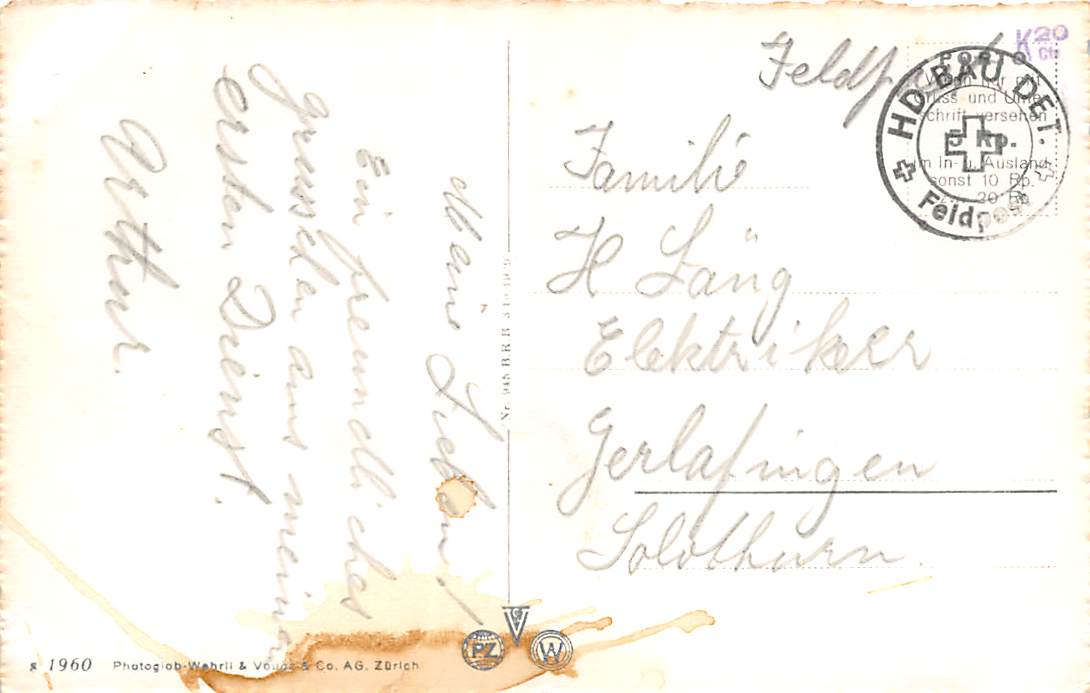 Meine Lieben!
Ein freundliches
Grüsschen aus meinem
ersten Dienst.
Arthur.
Feldpost
Familie
H Läng
Elektriker
Gerlafingen
Solothurn.
K 20
Cts
PORTO
Wenn nur mit
Gruss und Unter-
schrift versehen
5 Rp.
im In- u. Ausland
sonst 10 Rp.
20 Rp
HD BAU DET.
Feldpost
Nr. 945 B.R.B.
PZ
V
G
W
s 1960 Photoglob-Wehrli & Vouga & Co. AG. Zürich